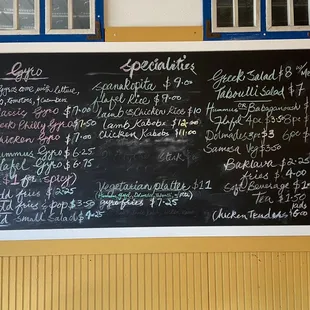 Gyro
with lettuce
tomatoes, & cucumbers
Classic Gyro $7.00
Philly Gyro $7.50
Chicken Gyro $7.00
Hummus Gyro $6.25
Falafel Gyro $6.75
fries $2.25
fries & pop $3.50
Small Salad $4.25
Specialities
Spanakopita $9.00
Falafel Rice $9.00
Lamb or Chicken Rice $10
Lamb Kabobs $12.00
Chicken Kabobs $11.00
Vegetarian platter $11
gyro fries $7.25
Greek Salad $8
Taboulli Salad $7
Hummus or Babaganoush
Falafel 4pc
Dolmades 6pc
Samosa Veg $3.50
Baklava $2.25
fries $4.00
Beverage
Tea $1.50
Kids
Chicken Tenders $6.00